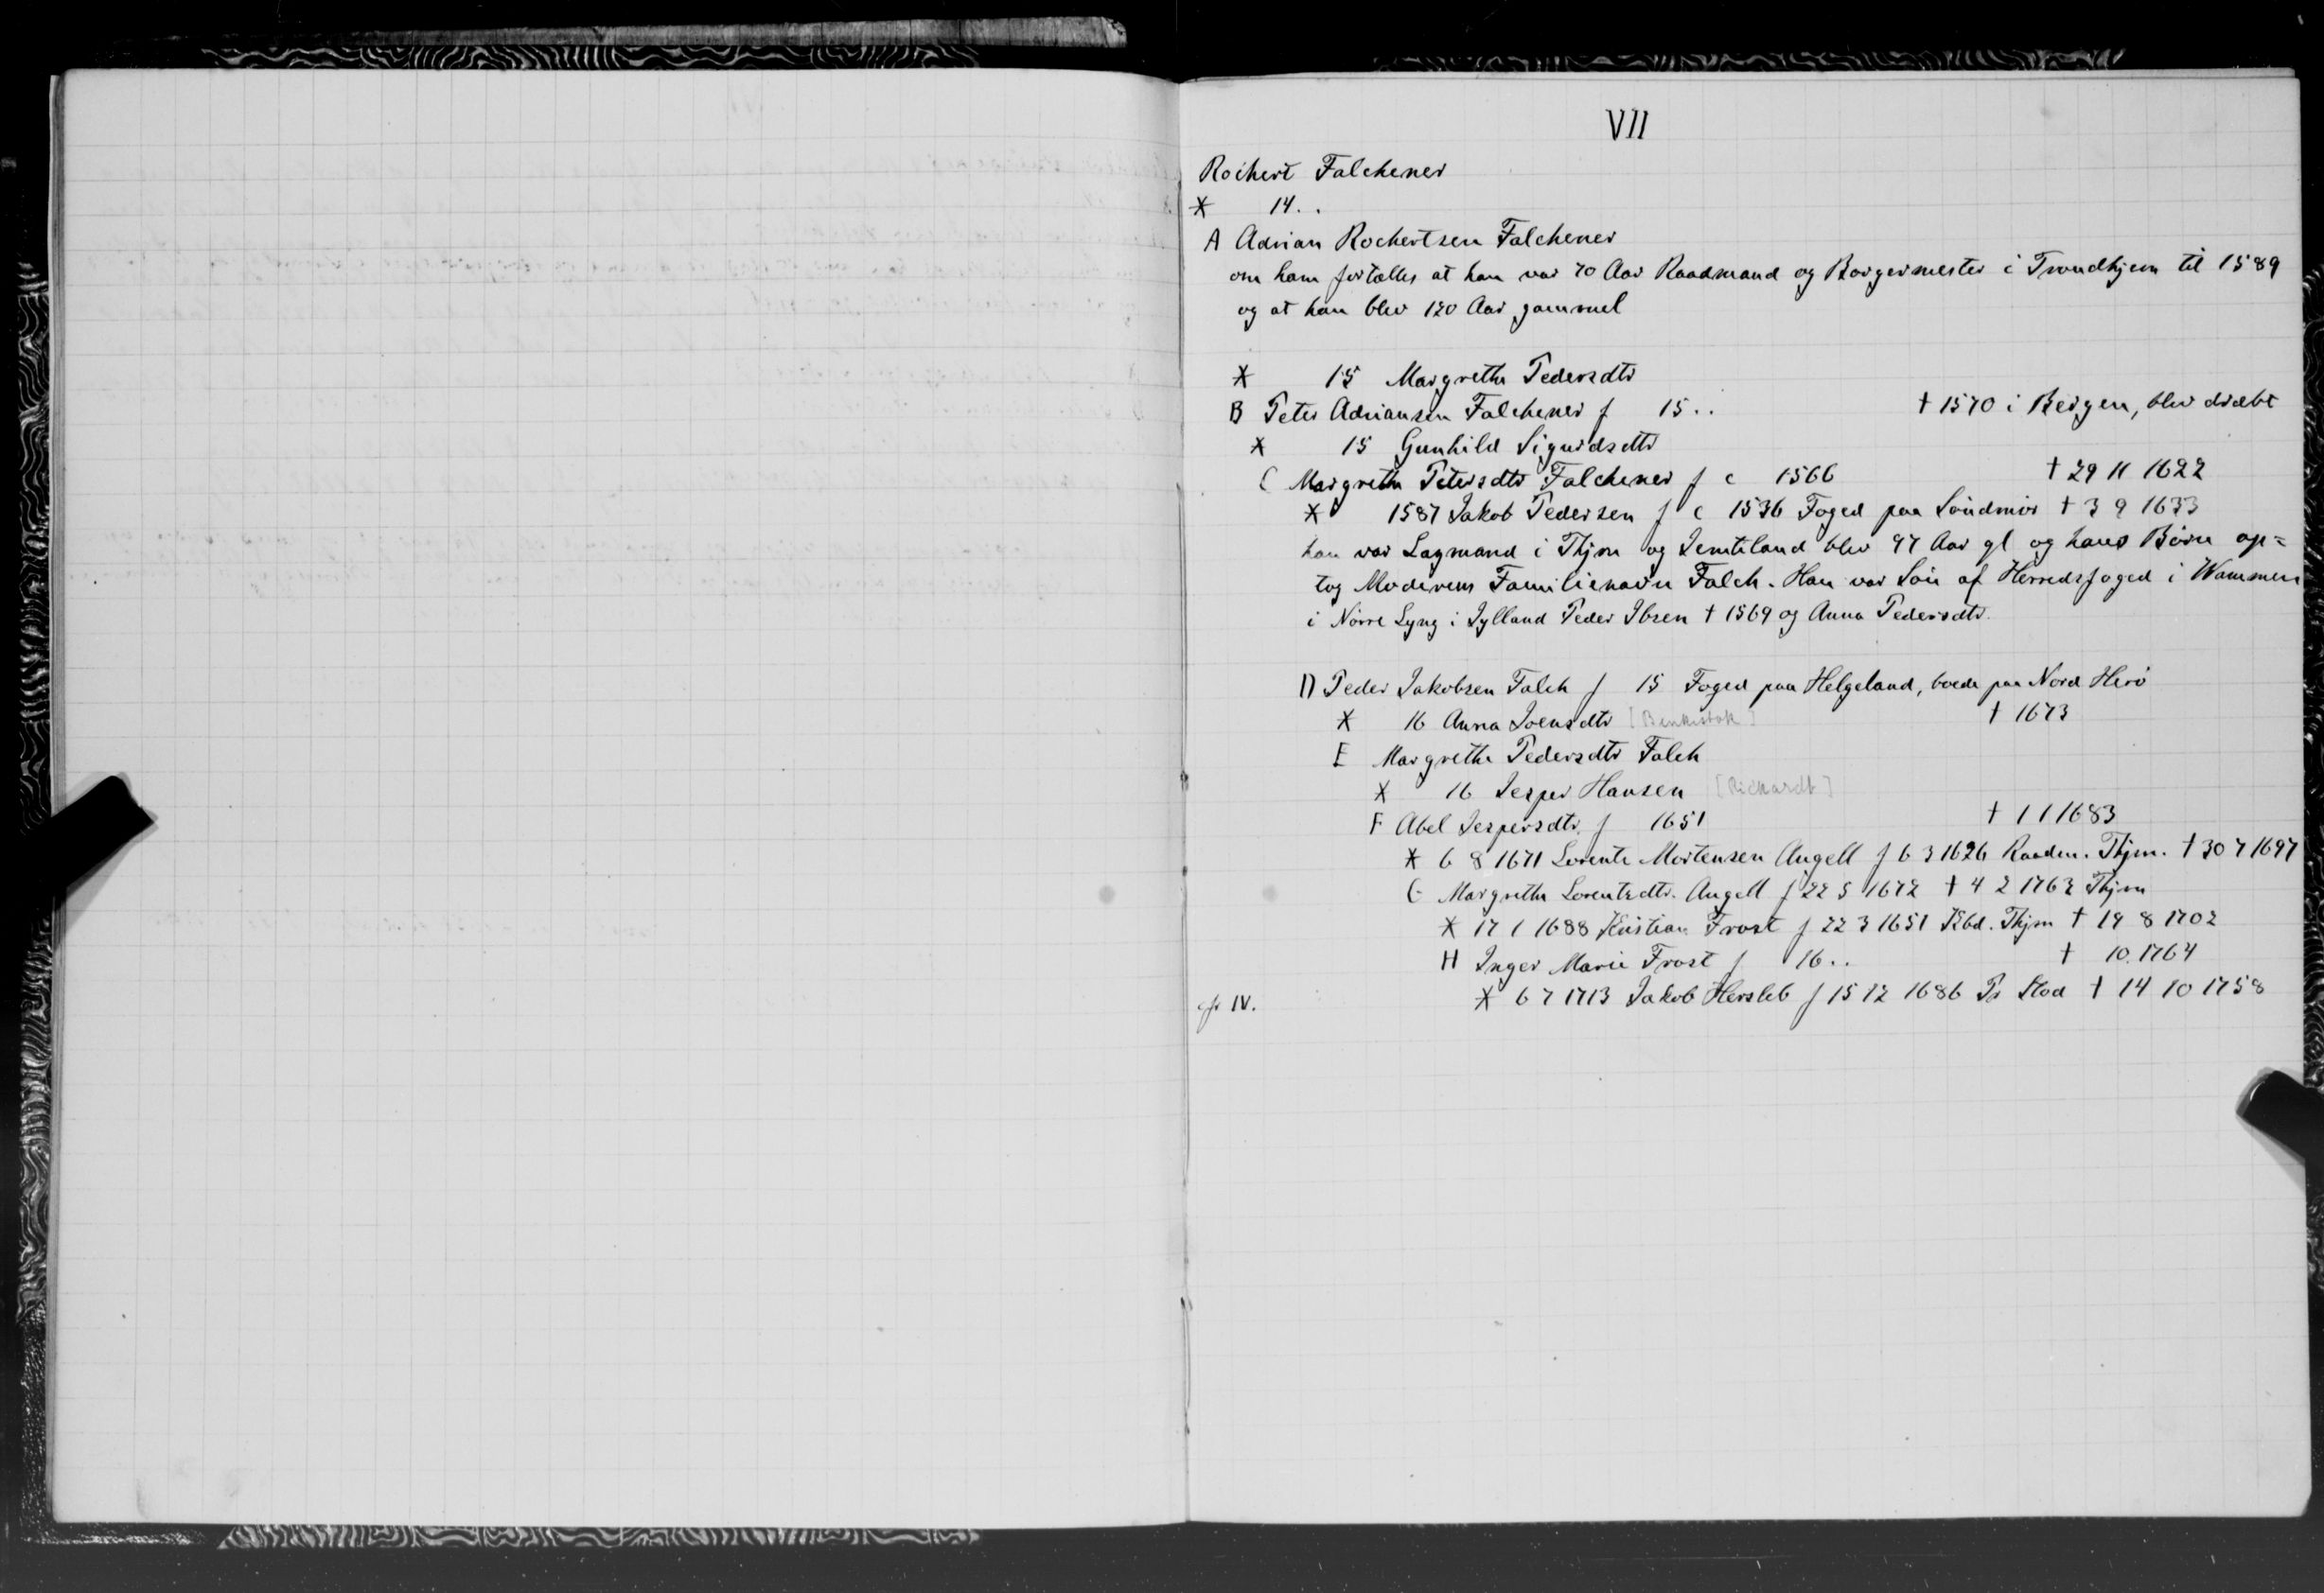 VII
Rochert Falchener
X 14..
A Adrian Rochertsen Falchener
om ham fortælles at han var 70 Aar Raadmand og Borgermester i Trondhjem til 1589
og at han blev 120 Aar gammel
X 15 Margrethe Pedersdtr
B Peter Adriansen Falchener f 15.. † 1570 i Bergen, blev dræbt
X 15 Gunhild Sigurdsdtr
C Margrethe Petersdtr Falchener f c 1566 † 29 11 1622
X 1587 Jakob Pedersen f c 1536 Foged paa Söndmör † 3 9 1633
han var Lagmand i Thjm og Jemteland blev 97 Aar gl og hans Børn op=
tog Moderens Familienavn Falch. Han var Sön af Herredsfoged i Wammen
i Nörre Lyng i Jylland Peder Ibsen † 1569 og Anna Pedersdtr.
D Peder Jakobsen Falch f 15 Foged paa Helgeland, boede paa Nord Herö
X 16 Anna Joensdtr [Benkestok] † 1673
E Margrethe Pedersdtr Falch
X 16 Jesper Hansen [Richardt]
F Abel Jespersdtr f 1651 † 1 1 1683
X 6 8 1671 Lorentz Mortensen Angell f 6 3 1626 Raadm. Thjm. † 30 7 1697
G Margrethe Lorentzdtr. Angell f 22 5 1672 † 4 2 1763 Thjm
X 17 1 1688 Kristian Frost f 22 3 1651 Kbd. Thjm † 19 8 1702
H Inger Marie Frost f 16.. † 10. 1764
cfr IV. X 6 7 1713 Jakob Hersleb f 15 12 1686 Pr Stod † 14 10 1758